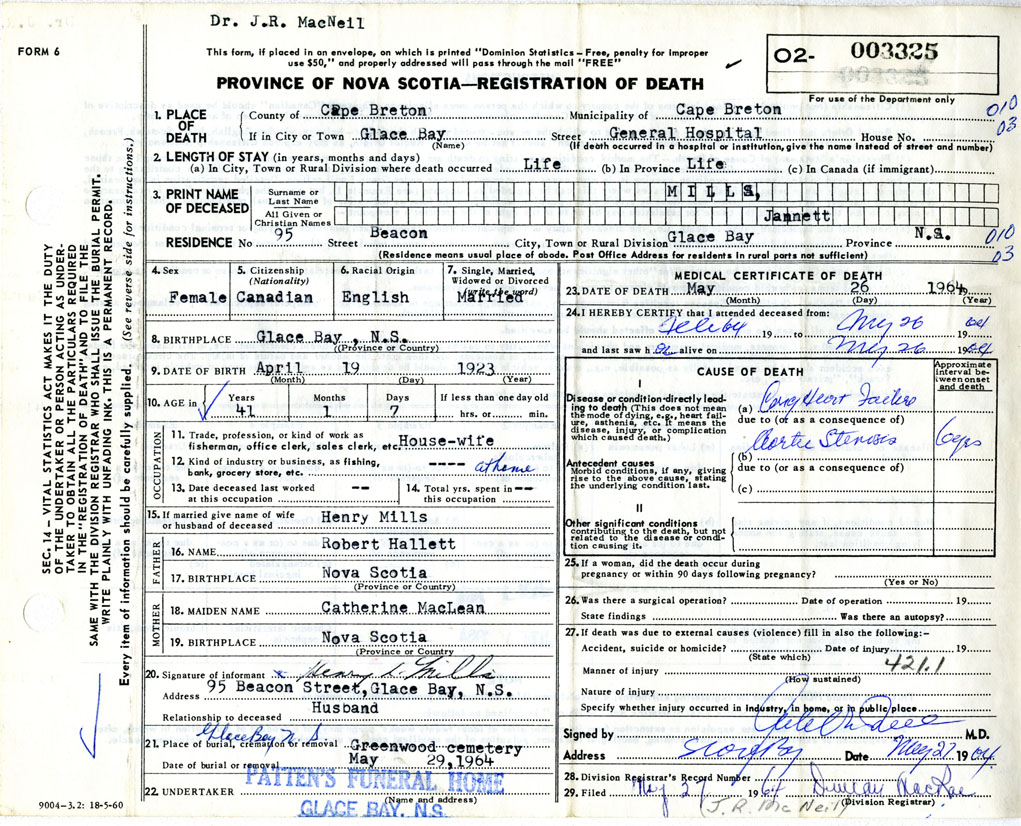 Dr. J.R. MacNeil
FORM 6
This form, if placed in an envelope, on which is printed "Dominion Statistics – Free, penalty for improper
use $50," and properly addressed will pass through the mail "FREE"
O2- 003325
PROVINCE OF NOVA SCOTIA—REGISTRATION OF DEATH
For use of the Department only
SEC. 14 – VITAL STATISTICS ACT MAKES IT THE DUTY
OF THE UNDERTAKER OR PERSON ACTING AS UNDER-
TAKER TO OBTAIN ALL THE PARTICULARS REQUIRED
IN THE "REGISTRATION OF DEATH" AND TO FILE THE
SAME WITH THE DIVISION REGISTRAR WHO SHALL ISSUE THE BURIAL PERMIT.
WRITE PLAINLY WITH UNFADING INK. THIS IS A PERMANENT RECORD.
Every item of information should be carefully supplied. (See reverse side for instructions.)
1. PLACE OF DEATH County of Cape Breton Municipality of Cape Breton 010
03
If in City or Town Glace Bay Street General Hospital House No.
(Name) (If death occurred in a hospital or institution, give the name instead of street and number)
2. LENGTH OF STAY (in years, months and days)
(a) In City, Town or Rural Division where death occurred Life (b) In Province Life (c) In Canada (if immigrant)
3. PRINT NAME OF DECEASED Surname or Last Name MILLS,
All Given or Christian Names Jannett
RESIDENCE No 95 Street Beacon City, Town or Rural Division Glace Bay Province N.S. 010
03
(Residence means usual place of abode. Post Office Address for residents in rural parts not sufficient)
4. Sex 5. Citizenship (Nationality) 6. Racial Origin 7. Single, Married, Widowed or Divorced (write the word)
Female Canadian English Married
8. BIRTHPLACE Glace Bay, N.S.
(Province or Country)
9. DATE OF BIRTH April 19 1923
(Month) (Day) (Year)
10. AGE in Years Months Days If less than one day old
41 1 7 hrs. or min.
OCCUPATION
11. Trade, profession, or kind of work as
fisherman, office clerk, sales clerk, etc. House-wife
12. Kind of industry or business, as fishing, ---- at home
bank, grocery store, etc.
13. Date deceased last worked at this occupation -- 14. Total yrs. spent in this occupation --
15. If married give name of wife or husband of deceased Henry Mills
FATHER
16. NAME Robert Hallett
17. BIRTHPLACE Nova Scotia
(Province or Country)
MOTHER
18. MAIDEN NAME Catherine MacLean
19. BIRTHPLACE Nova Scotia
(Province or Country)
20. Signature of informant x Henry L. Mills
Address 95 Beacon Street, Glace Bay, N.S.
Relationship to deceased Husband
Glace Bay N.S.
21. Place of burial, cremation or removal Greenwood cemetery
Date of burial or removal May 29, 1964
22. UNDERTAKER PATTEN'S FUNERAL HOME
(Name and address)
GLACE BAY, N.S.
9004–3.2: 18-5-60
MEDICAL CERTIFICATE OF DEATH
23. DATE OF DEATH May 26 1964
(Month) (Day) (Year)
24. I HEREBY CERTIFY that I attended deceased from:
Feb 64 19 to May 26 19 64
and last saw h er alive on May 26 19 64
CAUSE OF DEATH
Approximate interval between onset and death
I
Disease or condition directly leading to death (This does not mean the mode of dying, e.g., heart failure, asthenia, etc. It means the disease, injury, or complication which caused death.)
(a) Cong Heart Failure
due to (or as a consequence of)
Aortic Stenosis
(b)
Antecedent causes
Morbid conditions, if any, giving rise to the above cause, stating the underlying condition last.
due to (or as a consequence of)
(c)
II
Other significant conditions
contributing to the death, but not related to the disease or condition causing it.
25. If a woman, did the death occur during
pregnancy or within 90 days following pregnancy?
(Yes or No)
26. Was there a surgical operation? Date of operation 19
State findings Was there an autopsy?
27. If death was due to external causes (violence) fill in also the following:–
Accident, suicide or homicide? Date of injury 19
(State which)
421.1
Manner of injury
(How sustained)
Nature of injury
Specify whether injury occurred in industry, in home, or in public place
Signed by M.D.
Address Date May 27 1964
28. Division Registrar's Record Number
29. Filed May 27 1964 Duncan MacRae
(J.R. MacNeil) (Division Registrar)